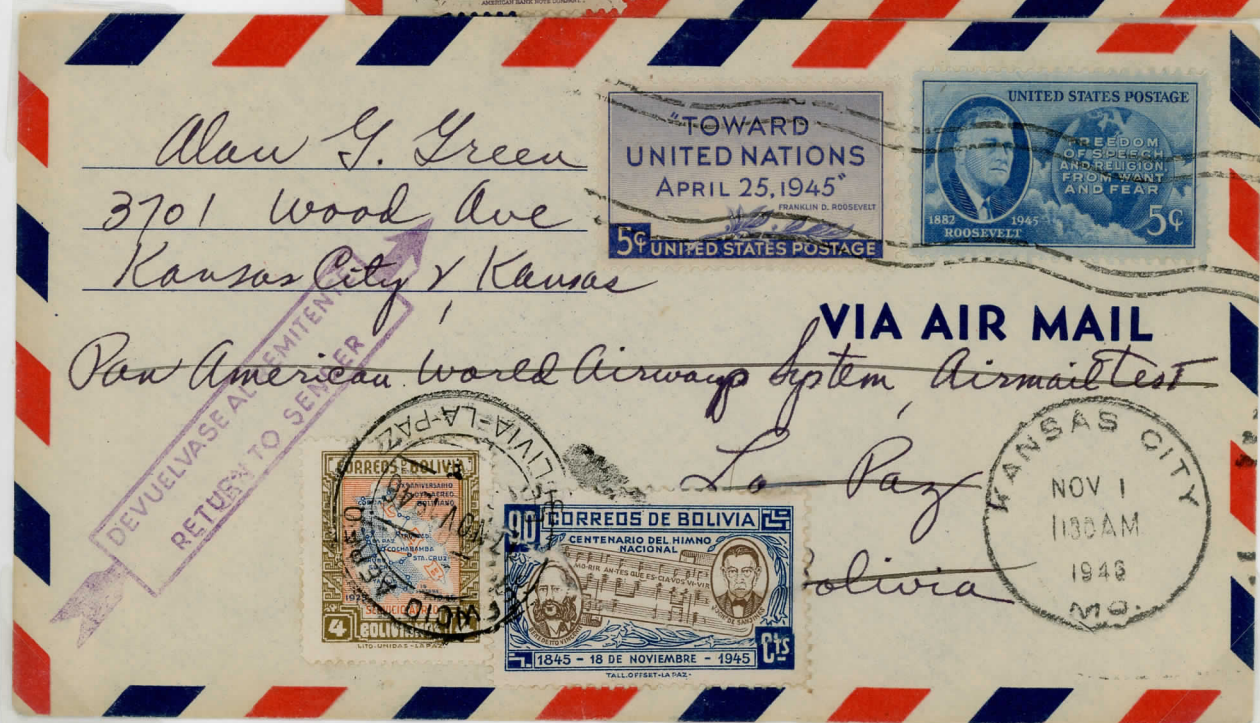 AMERICAN BANK NOTE COMPANY.
Alan G. Green
3701 Wood Ave
Kansas City, Kansas
"TOWARD
UNITED NATIONS
APRIL 25, 1945"
FRANKLIN D. ROOSEVELT
5¢ UNITED STATES POSTAGE
UNITED STATES POSTAGE
FREEDOM
OF SPEECH
AND RELIGION,
FROM WANT
AND FEAR
1882 1945
ROOSEVELT
5¢
VIA AIR MAIL
Pan American World Airways System, Airmail Test
La Paz
Bolivia
DEVUELVASE AL REMITENTE
RETURN TO SENDER
KANSAS CITY
NOV 1
1130 AM
1946
MO.
BOLIVIA-LA-PAZ
NOV
AEREO
CORREOS DE BOLIVIA
ANIVERSARIO
COCHABAMBA
STA. CRUZ
4 BOLIVIANOS
LITO. UNIDAS - LA PAZ
90 CORREOS DE BOLIVIA
CENTENARIO DEL HIMNO
NACIONAL
MO-RIR AN-TES QUE ES-CLA VOS VI-VIR
Cts
1845 - 18 DE NOVIEMBRE - 1945
TALL. OFFSET - LA PAZ -